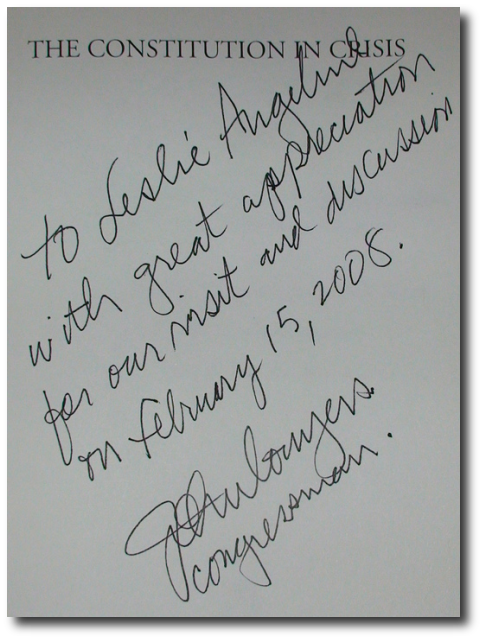 THE CONSTITUTION IN CRISIS
to Leslie Angeline
with great appreciation
for our visit and discussion
on February 15, 2008.
John Conyers.
congressman.